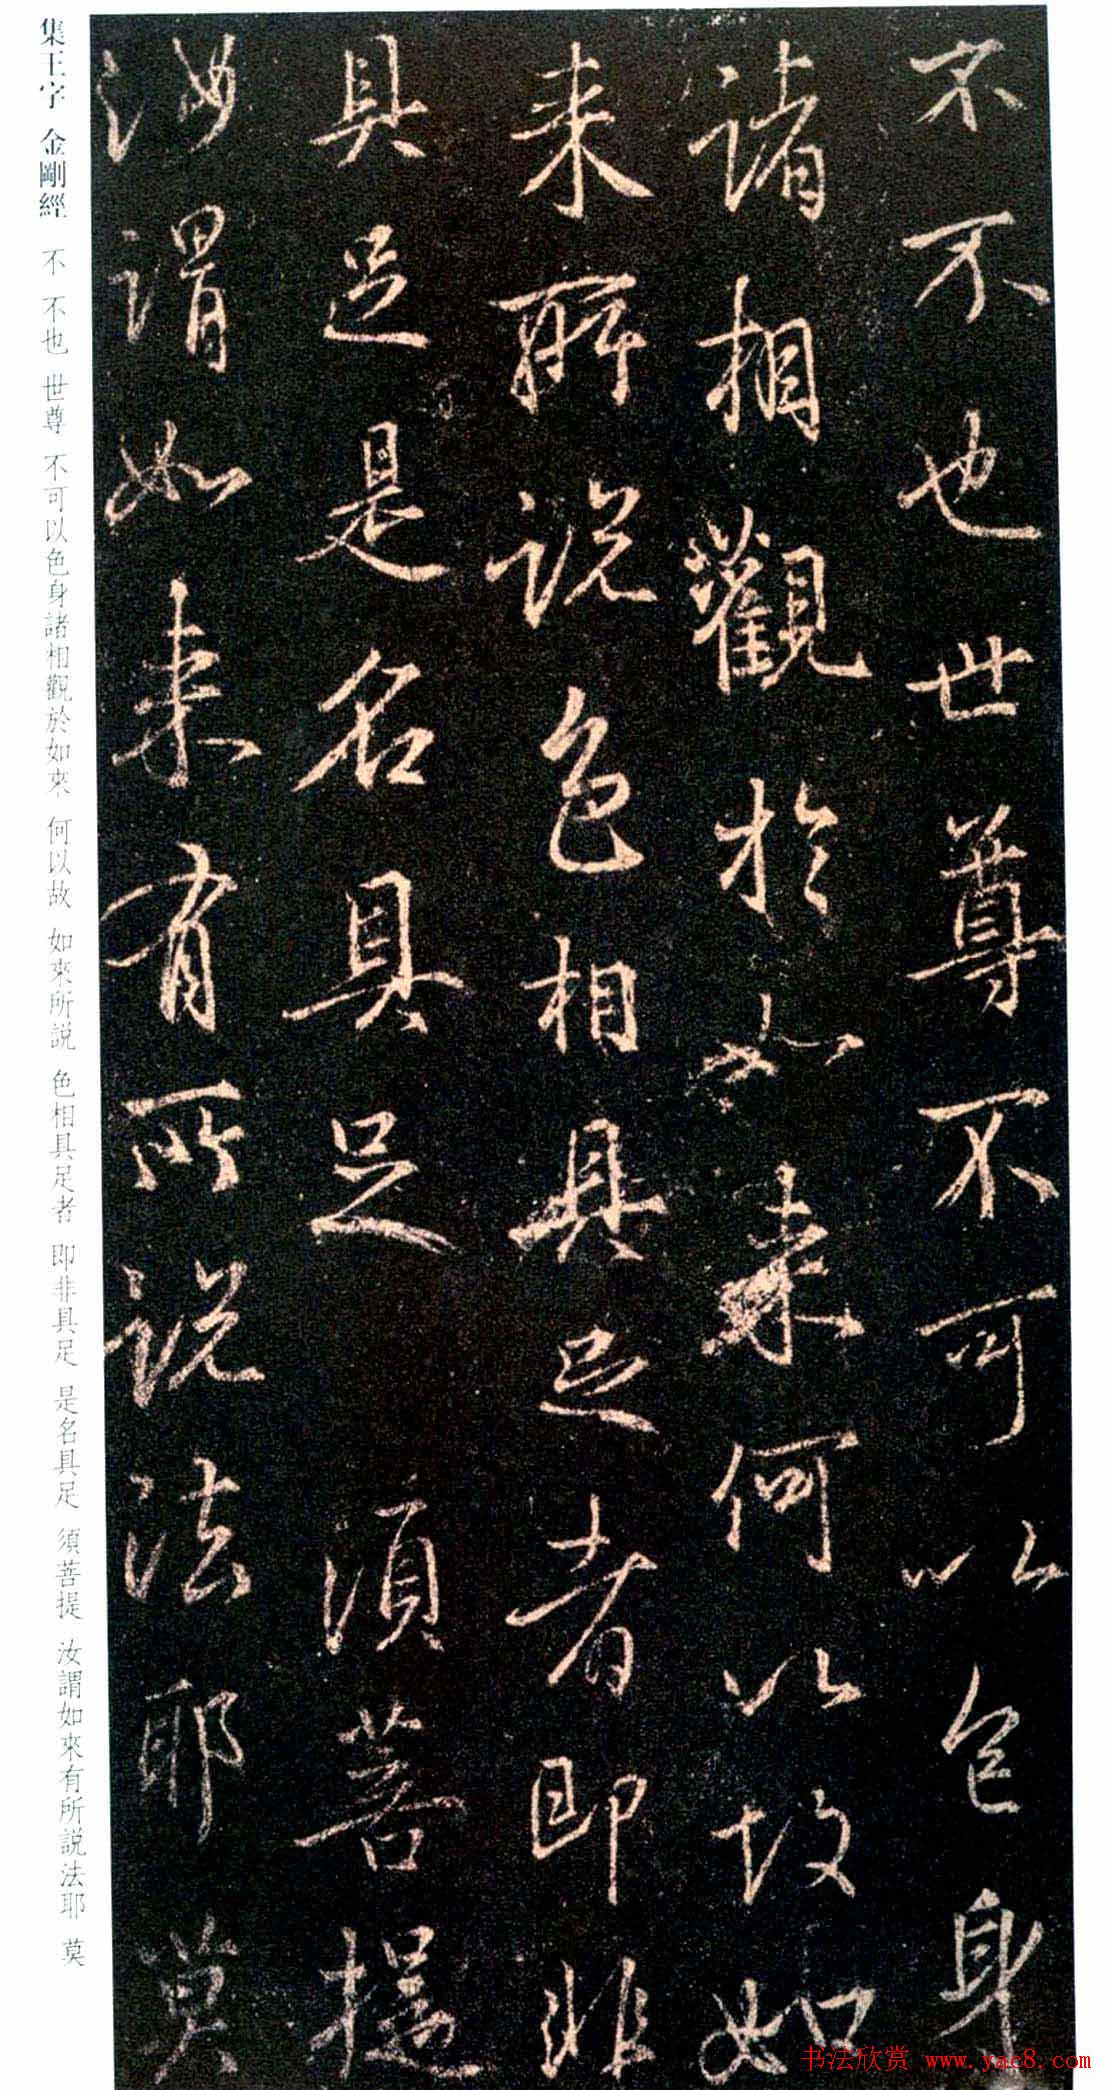 不不也世尊不可以色身
諸相觀於如来何以故如
来所説色相具足者即非
具足是名具足 須菩提
汝謂如来有所説法耶莫
集王字 金剛經 不 不也 世尊 不可以色身諸相觀於如來 何以故 如來所説 色相具足者 即非具足 是名具足 須菩提 汝謂如來有所説法耶 莫
书法欣赏 www.yac8.com